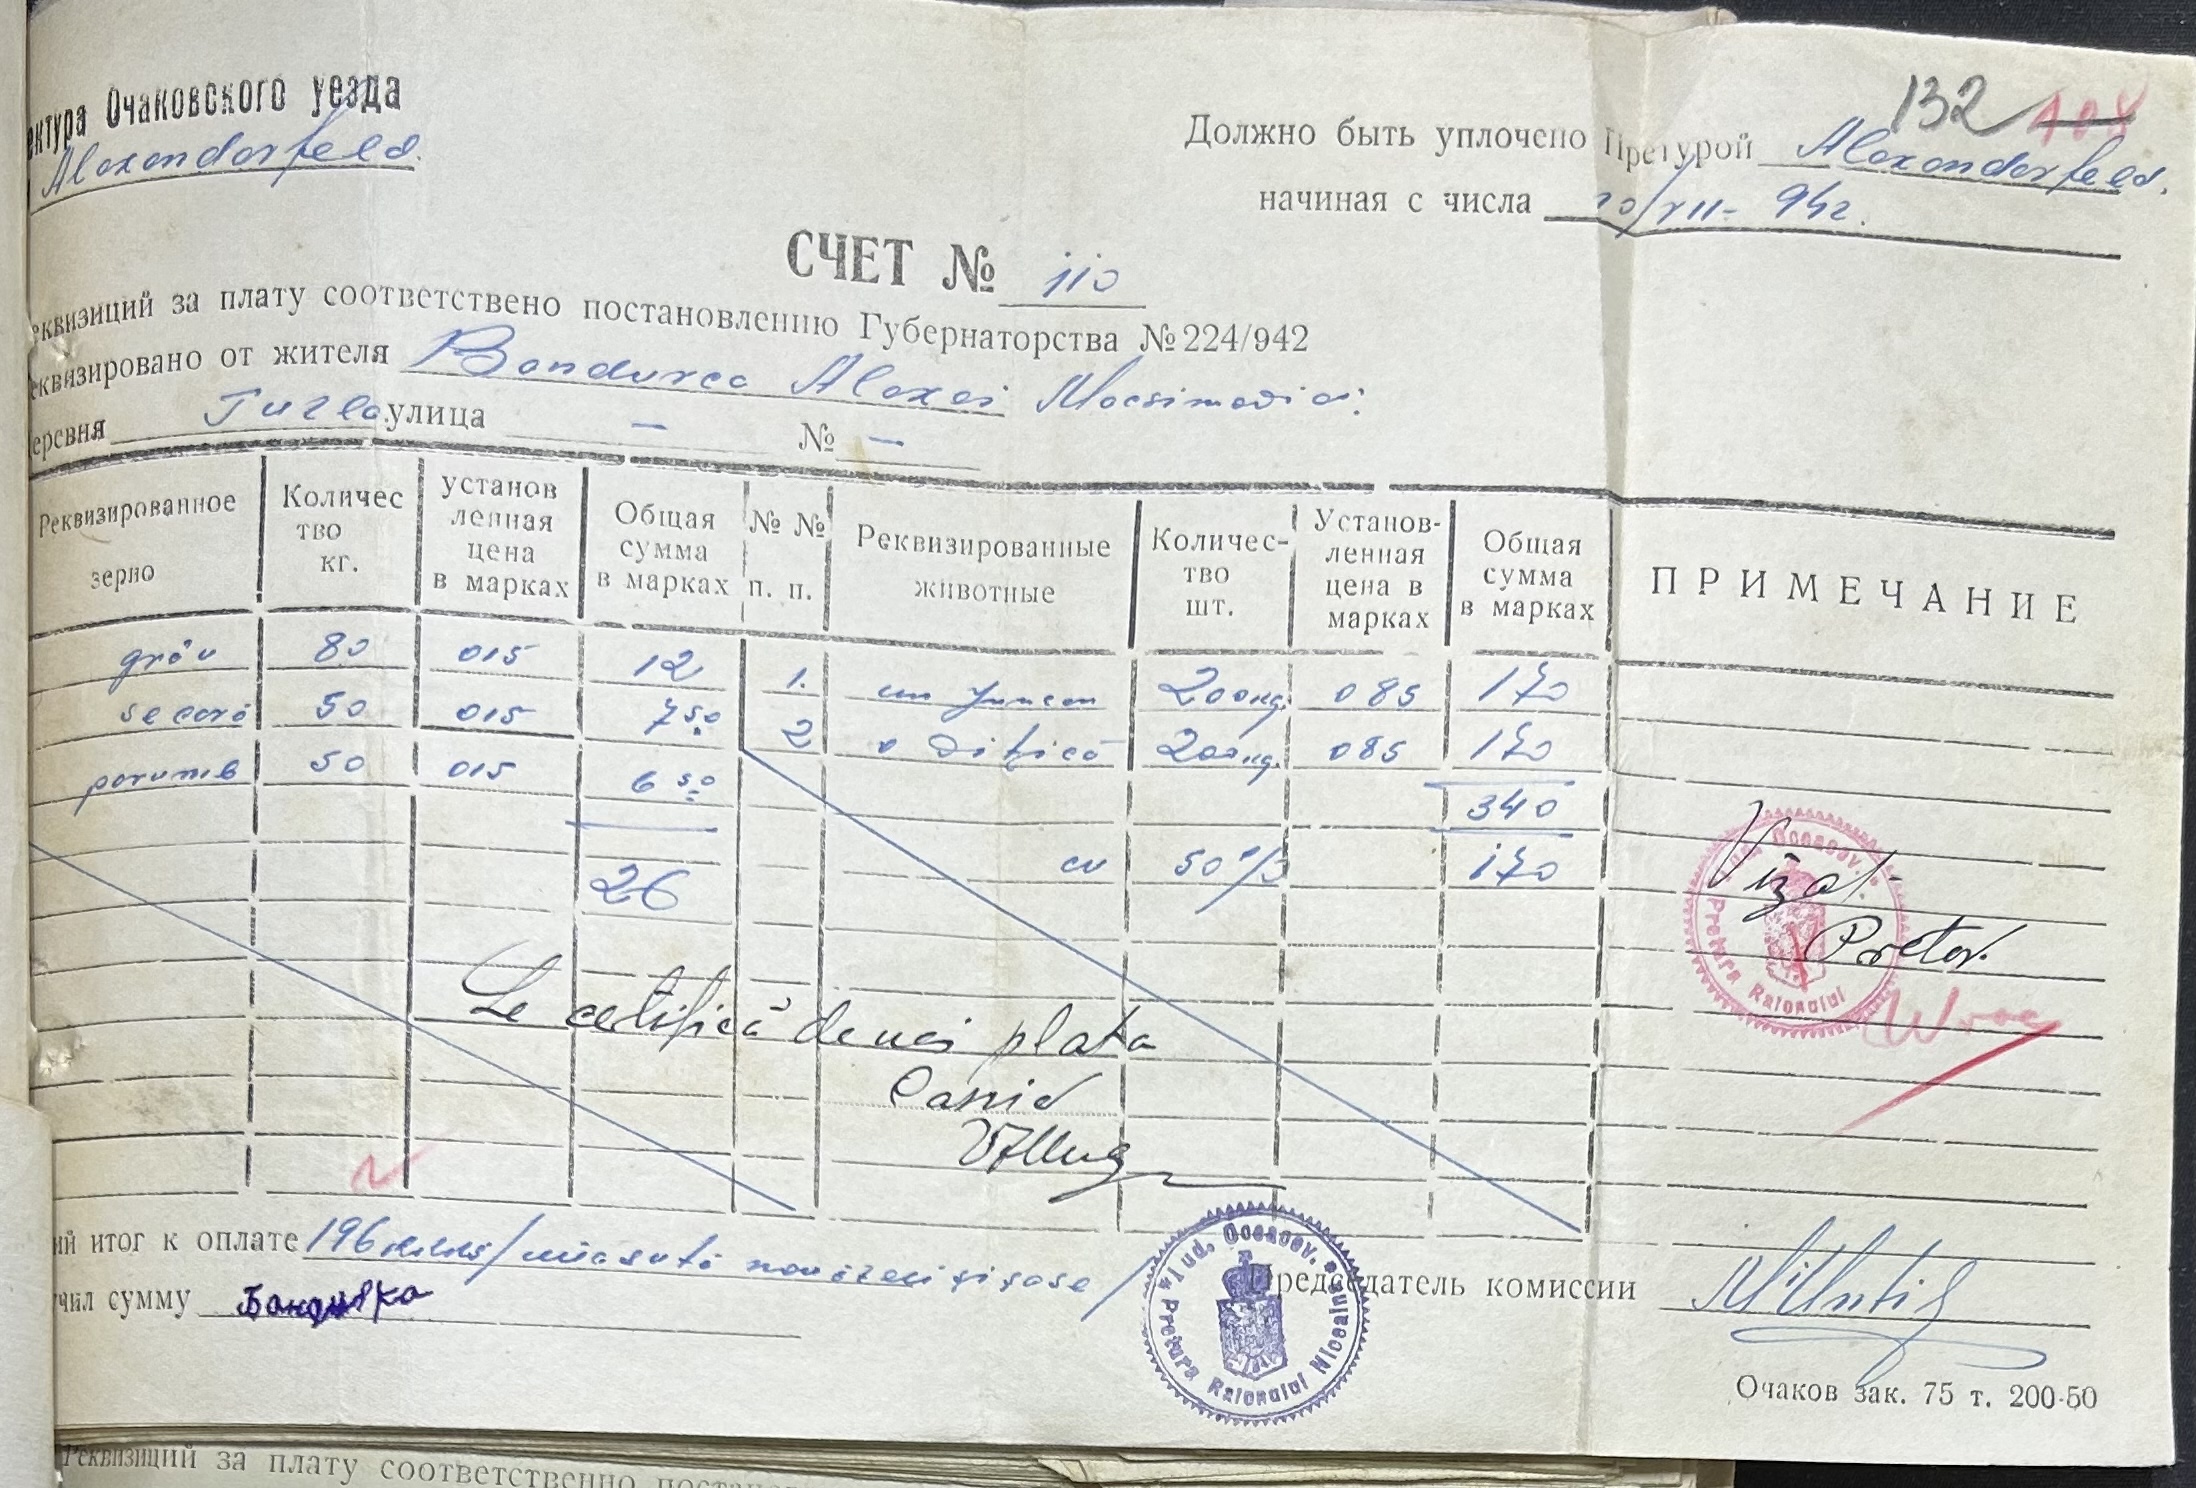 ектура Очаковского уезда
Alexandorfeld.
132 108
Должно быть уплочено Претурой Alexandorfeld.
начиная с числа 20/VII- 942.
СЧЕТ № 110
еквизиций за плату соответствено постановлению Губернаторства № 224/942
еквизировано от жителя Bondurco Alexei Macsimovici.
еревня Tuzla. улица — № —
Реквизированное зерно Количес тво кг. установ ленная цена в марках Общая сумма в марках № № п. п. Реквизированные животные Количес- тво шт. Установ- ленная цена в марках Общая сумма в марках ПРИМЕЧАНИЕ
grâu 80 015 12 1. un juncan 200кд. 085 170
secară 50 015 7 50 2 o vițică 200кд. 085 170
porumb 50 015 6 50 340
26 cu 50 % 170
Vizat.
Pretor.
Se certifică de noi plata
Casier
ий итог к оплате 196 / una sută nouăzeci și șase /
чил сумму Бондарко
Председатель комиссии
* Jud. Oceacov. * Pretura Raionului
* Jud. Oceacov. * Pretura Raionului
Очаков зак. 75 т. 200-50
Реквизиций за плату соответственно